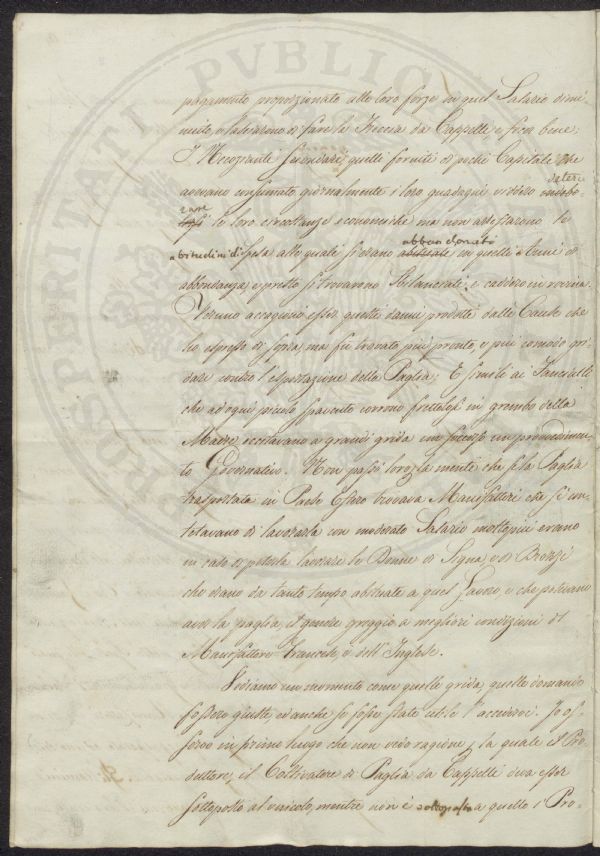 PROSPERITATI PVBLICAE
pagamento proporzionato alle loro forze in quel Salario dimi-
nuito, e lasciarono di fare le Treccia da Cappelli e fecer bene:
I Negozianti Secondarj, quelli forniti di pochi Capitali che
avevano consumato giornalmente i loro guadagni videro
deterio-
rare le loro circostanze economiche ma non arrestarono le
abitudini di spesa alle quali si erano abbandonati in quelli Anni di
abbondanza, e presto si trovarono sbilanciati, e caddero in rovina.
Veruno accagionò esser questi danni prodotti dalle Cause che
ho espresso di sopra, ma fu trovato più pronto, e più comodo gri-
dare contro l'esportazione della Paglia; E simili ai Fanciulli
che ad ogni piccolo spavento corrono frettolosi in grembo della
Madre, recitavano a grandi grida un soccorso un provvedimen-
to Governativo. Non passò loro per la mente che se la Paglia
trasportata in Paese Estero trovava Manifattori che si con-
tetavano di lavorarla con moderato Salario molto più erano
in caso di poterla lavorare le Donne di Signa, e di Brozzi
che erano da tanto tempo abituate a quel Lavoro, e che potevano
aver la paglia, il genere greggio a migliori condizioni del
Manifattore Francese, e dell'Inglese.
Vediamo un momento come quelle grida, quelle domande
fossero giuste, ed anche se fosse stato utile l'accudirvi. Io os-
servo in primo luogo che non vedo ragione, per la quale il Pro-
duttore, il Coltivatore di Paglia da Cappelli deva esser
sottoposto al vincolo, mentre non è sottoposto a quello il Pro-